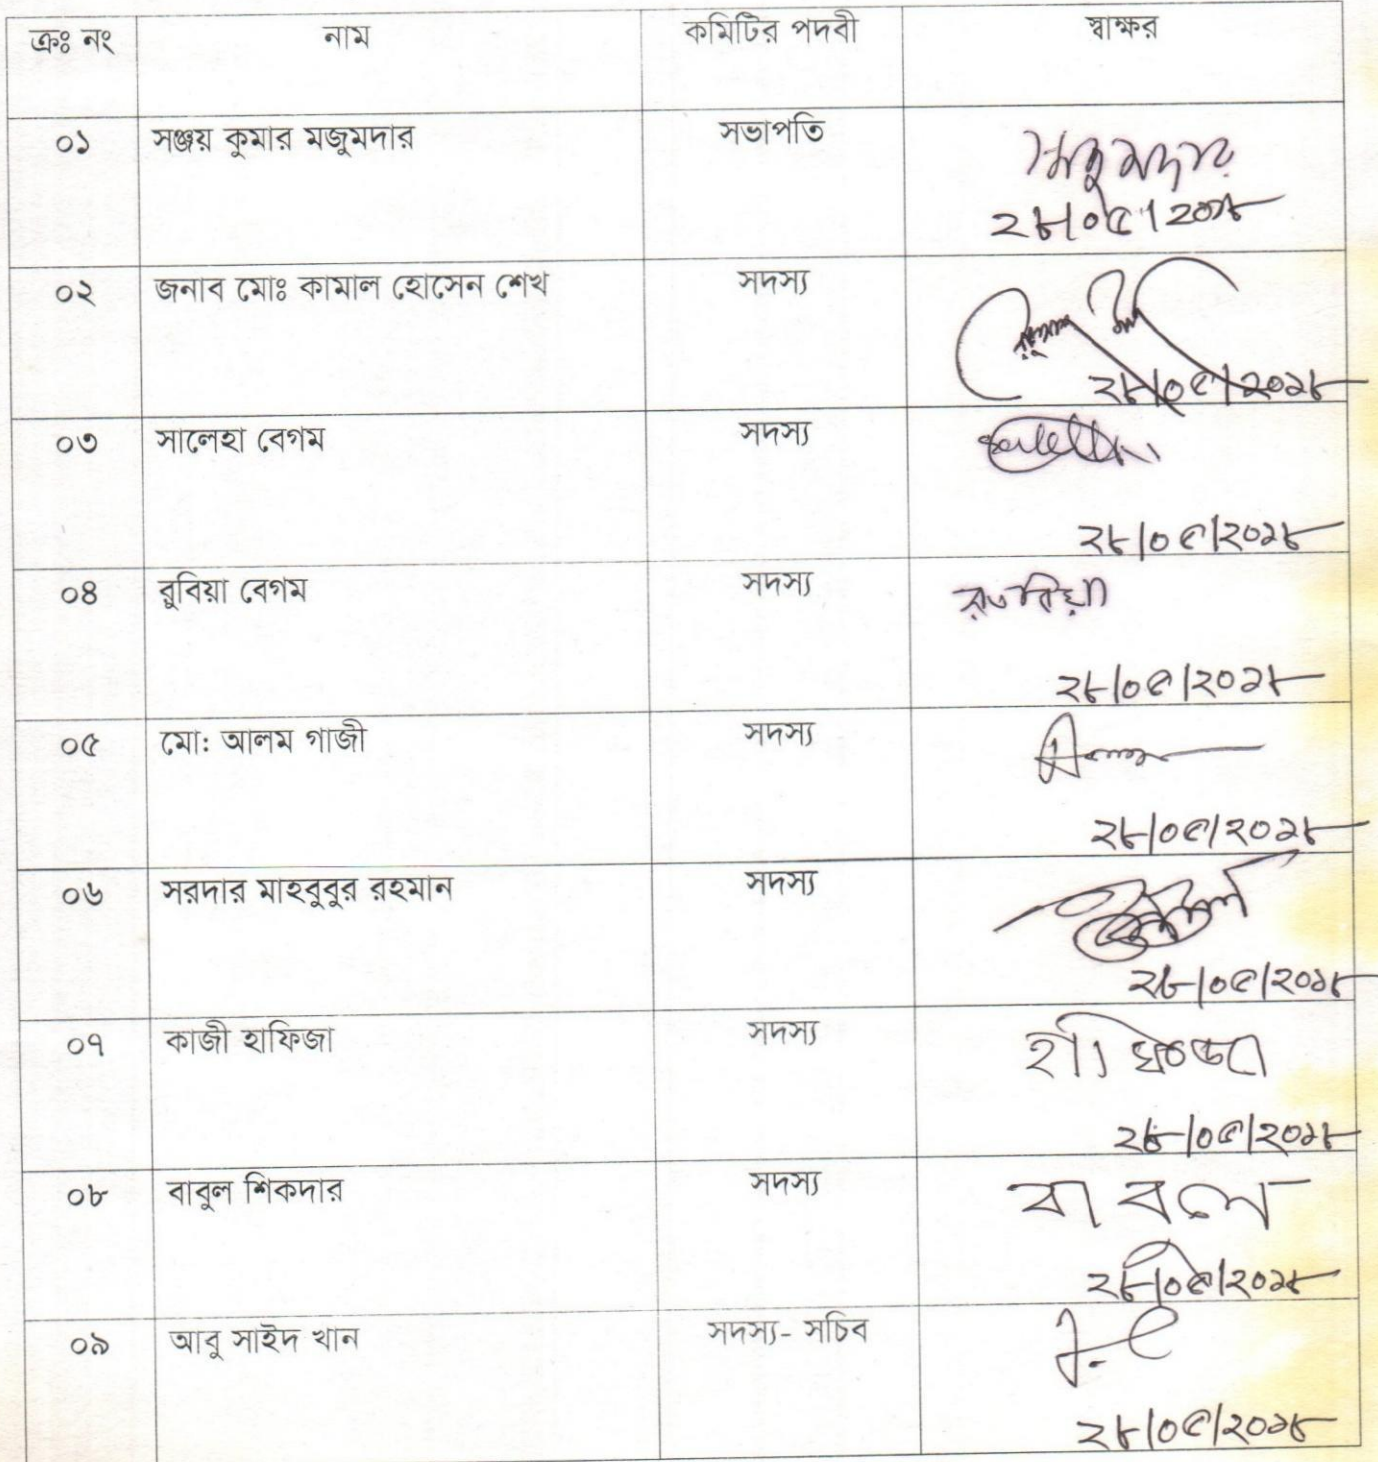 ক্রঃ নং নাম কমিটির পদবী স্বাক্ষর
০১ সঞ্জয় কুমার মজুমদার সভাপতি মজুমদার
২৮/০৫/২০১৮
০২ জনাব মোঃ কামাল হোসেন শেখ সদস্য
২৮/০৫/২০১৮
০৩ সালেহা বেগম সদস্য
২৮/০৫/২০১৮
০৪ রুবিয়া বেগম সদস্য
২৮/০৫/২০১৮
০৫ মো: আলম গাজী সদস্য
২৮/০৫/২০১৮
০৬ সরদার মাহবুবুর রহমান সদস্য
২৮/০৫/২০১৮
০৭ কাজী হাফিজা সদস্য
২৮/০৫/২০১৮
০৮ বাবুল শিকদার সদস্য
২৮/০৫/২০১৮
০৯ আবু সাইদ খান সদস্য- সচিব
২৮/০৫/২০১৮